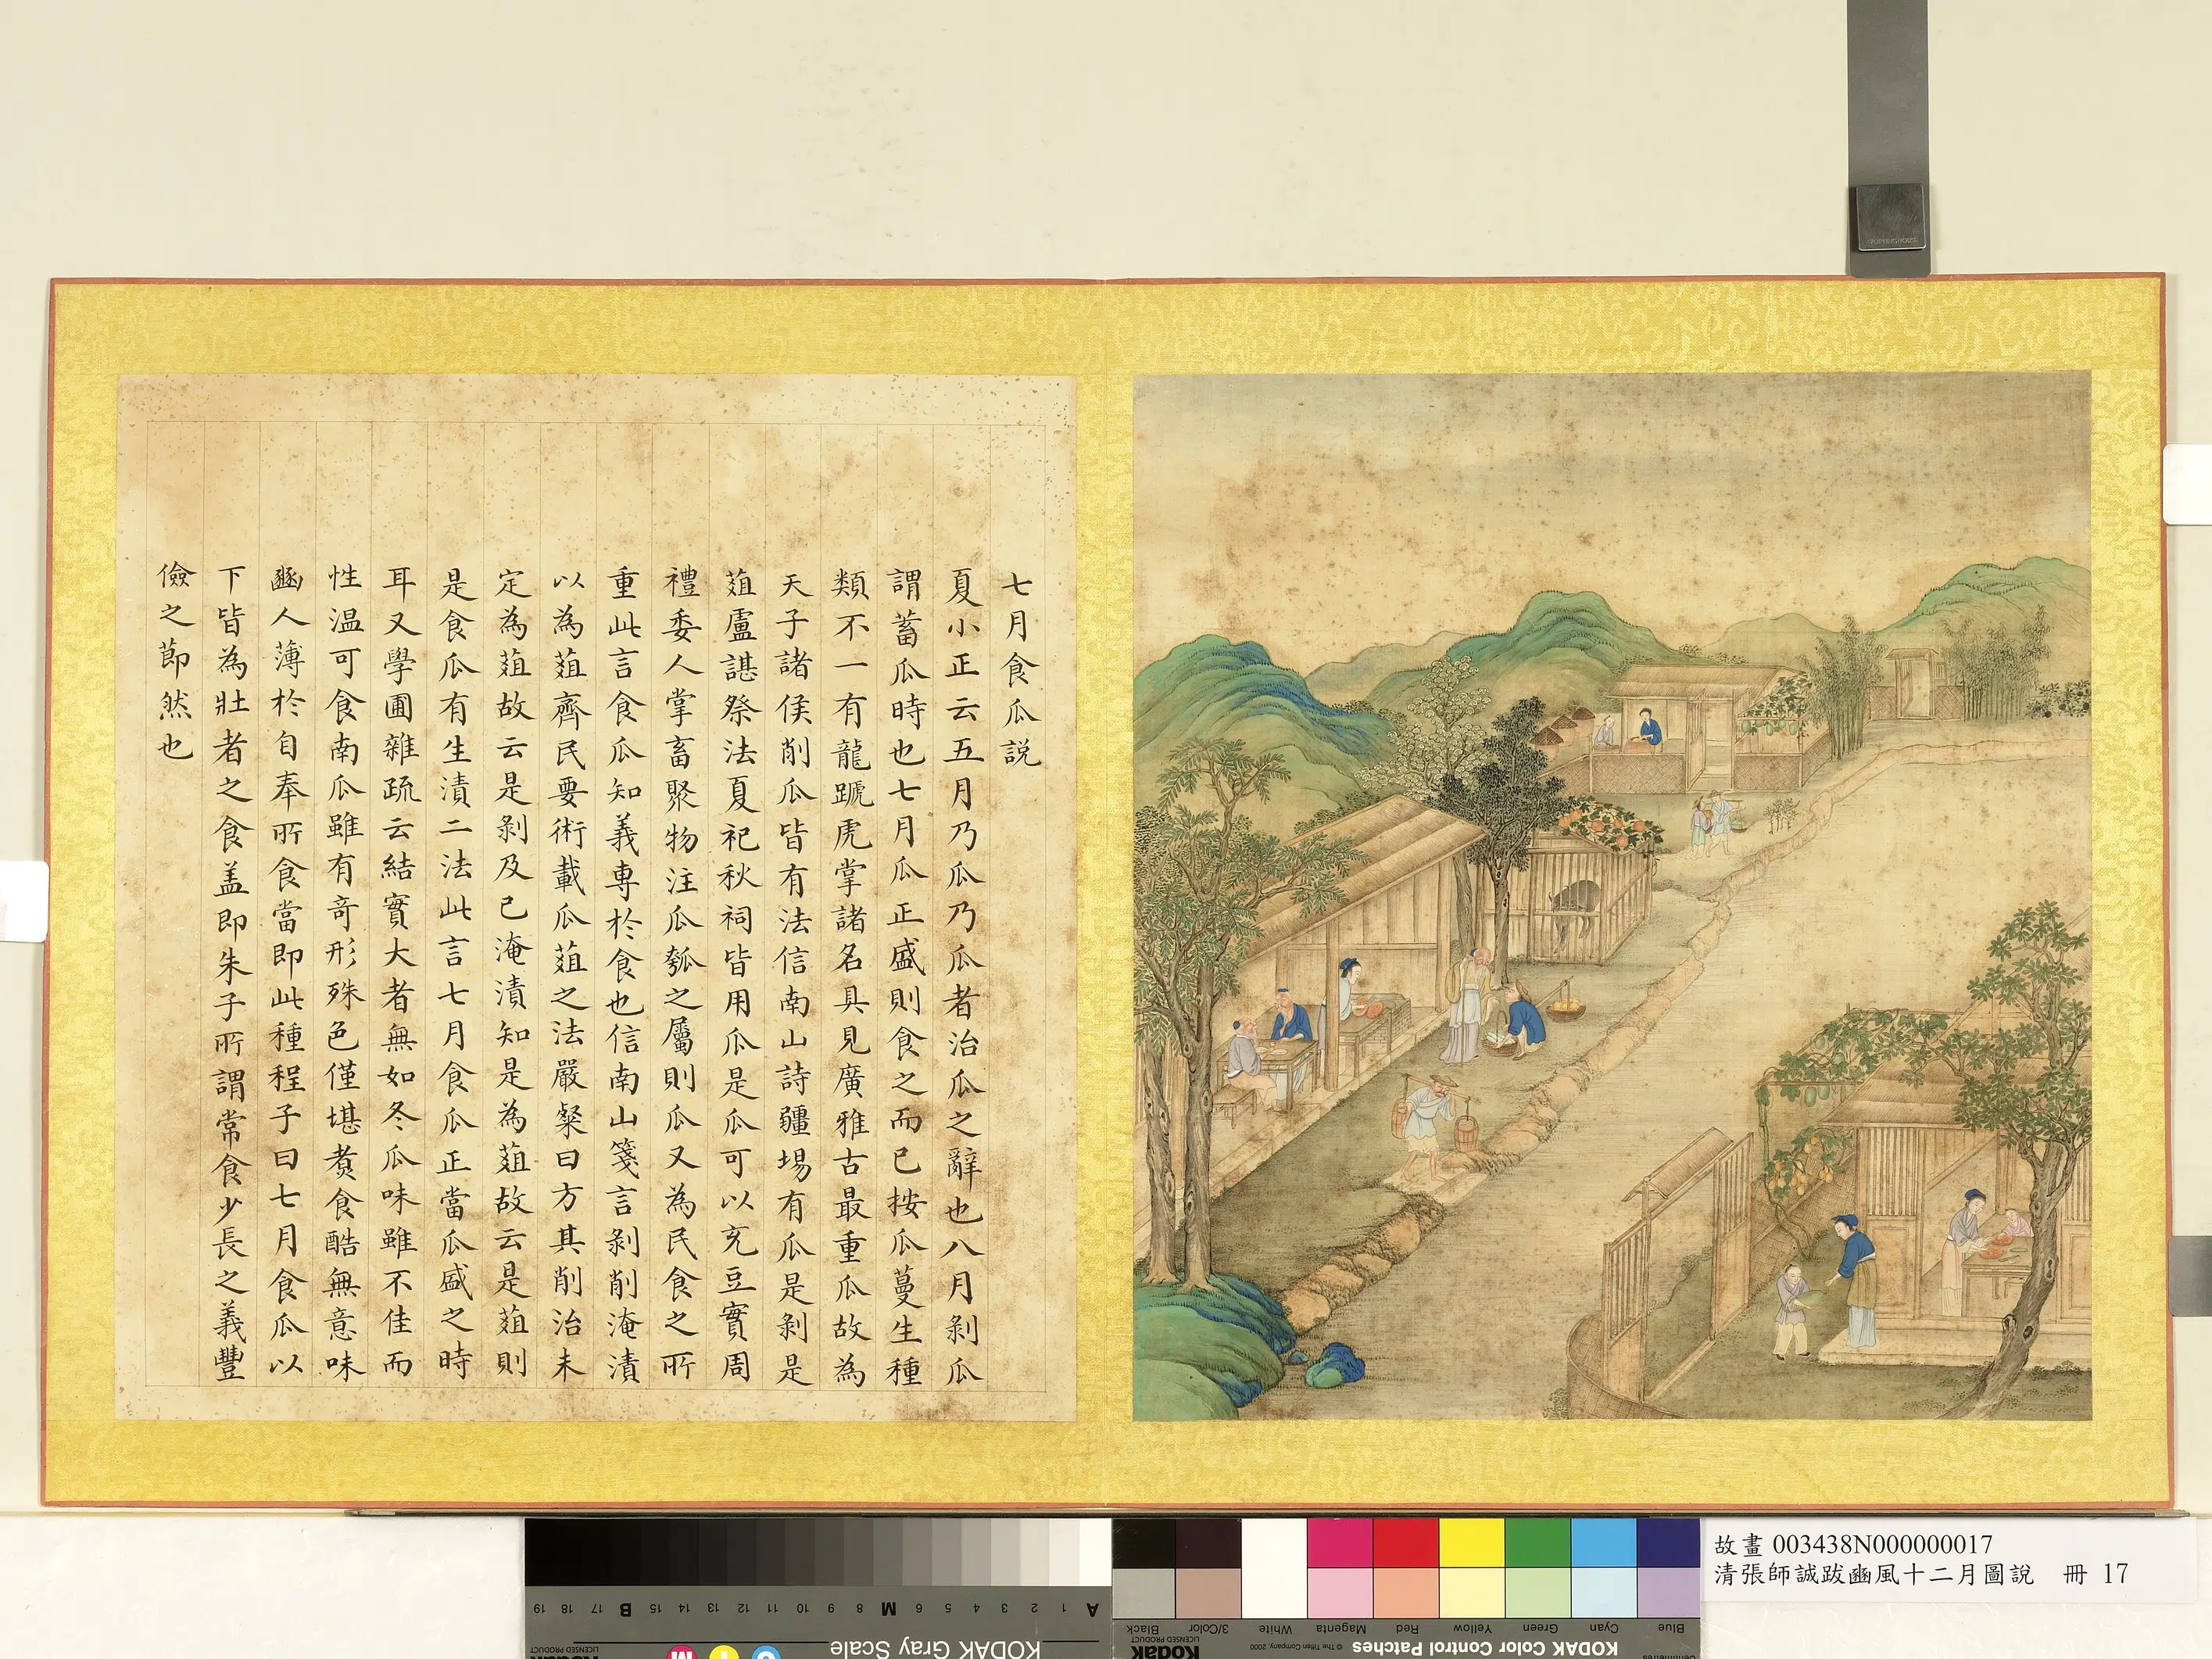 七月食瓜説
夏小正云五月乃瓜乃瓜者治瓜之辭也八月剝瓜
謂蓄瓜時也七月瓜正盛則食之而已按瓜蔓生種
類不一有龍蹏虎掌諸名具見廣雅古最重瓜故為
天子諸侯削瓜皆有法信南山詩疆埸有瓜是剝是
菹盧諶祭法夏祀秋祠皆用瓜是瓜可以充豆實周
禮委人掌畜聚物注瓜瓠之屬則瓜又為民食之所
重此言食瓜知義專於食也信南山箋言剝削淹漬
以為菹齊民要術載瓜菹之法嚴粲曰方其削治未
定為菹故云是剝及已淹漬知是為菹故云是菹則
是食瓜有生漬二法此言七月食瓜正當瓜盛之時
耳又學圃雜疏云結實大者無如冬瓜味雖不佳而
性温可食南瓜雖有竒形殊色僅堪煑食酷無意味
豳人薄於自奉所食當即此種程子曰七月食瓜以
下皆為壯者之食盖即朱子所謂常食少長之義豐
儉之節然也
故畫 003438N000000017
清張師誠跋豳風十二月圖說 冊 17
A 1 2 3 4 5 6 M 8 9 10 11 12 13 14 15 B 17 18 19
KODAK Gray Scale
Kodak
LICENSED PRODUCT
C Y M
Blue Cyan Green Yellow Red Magenta White 3/Color Black
KODAK Color Control Patches © The Tiffen Company, 2000
Kodak
LICENSED PRODUCT
Centimetres